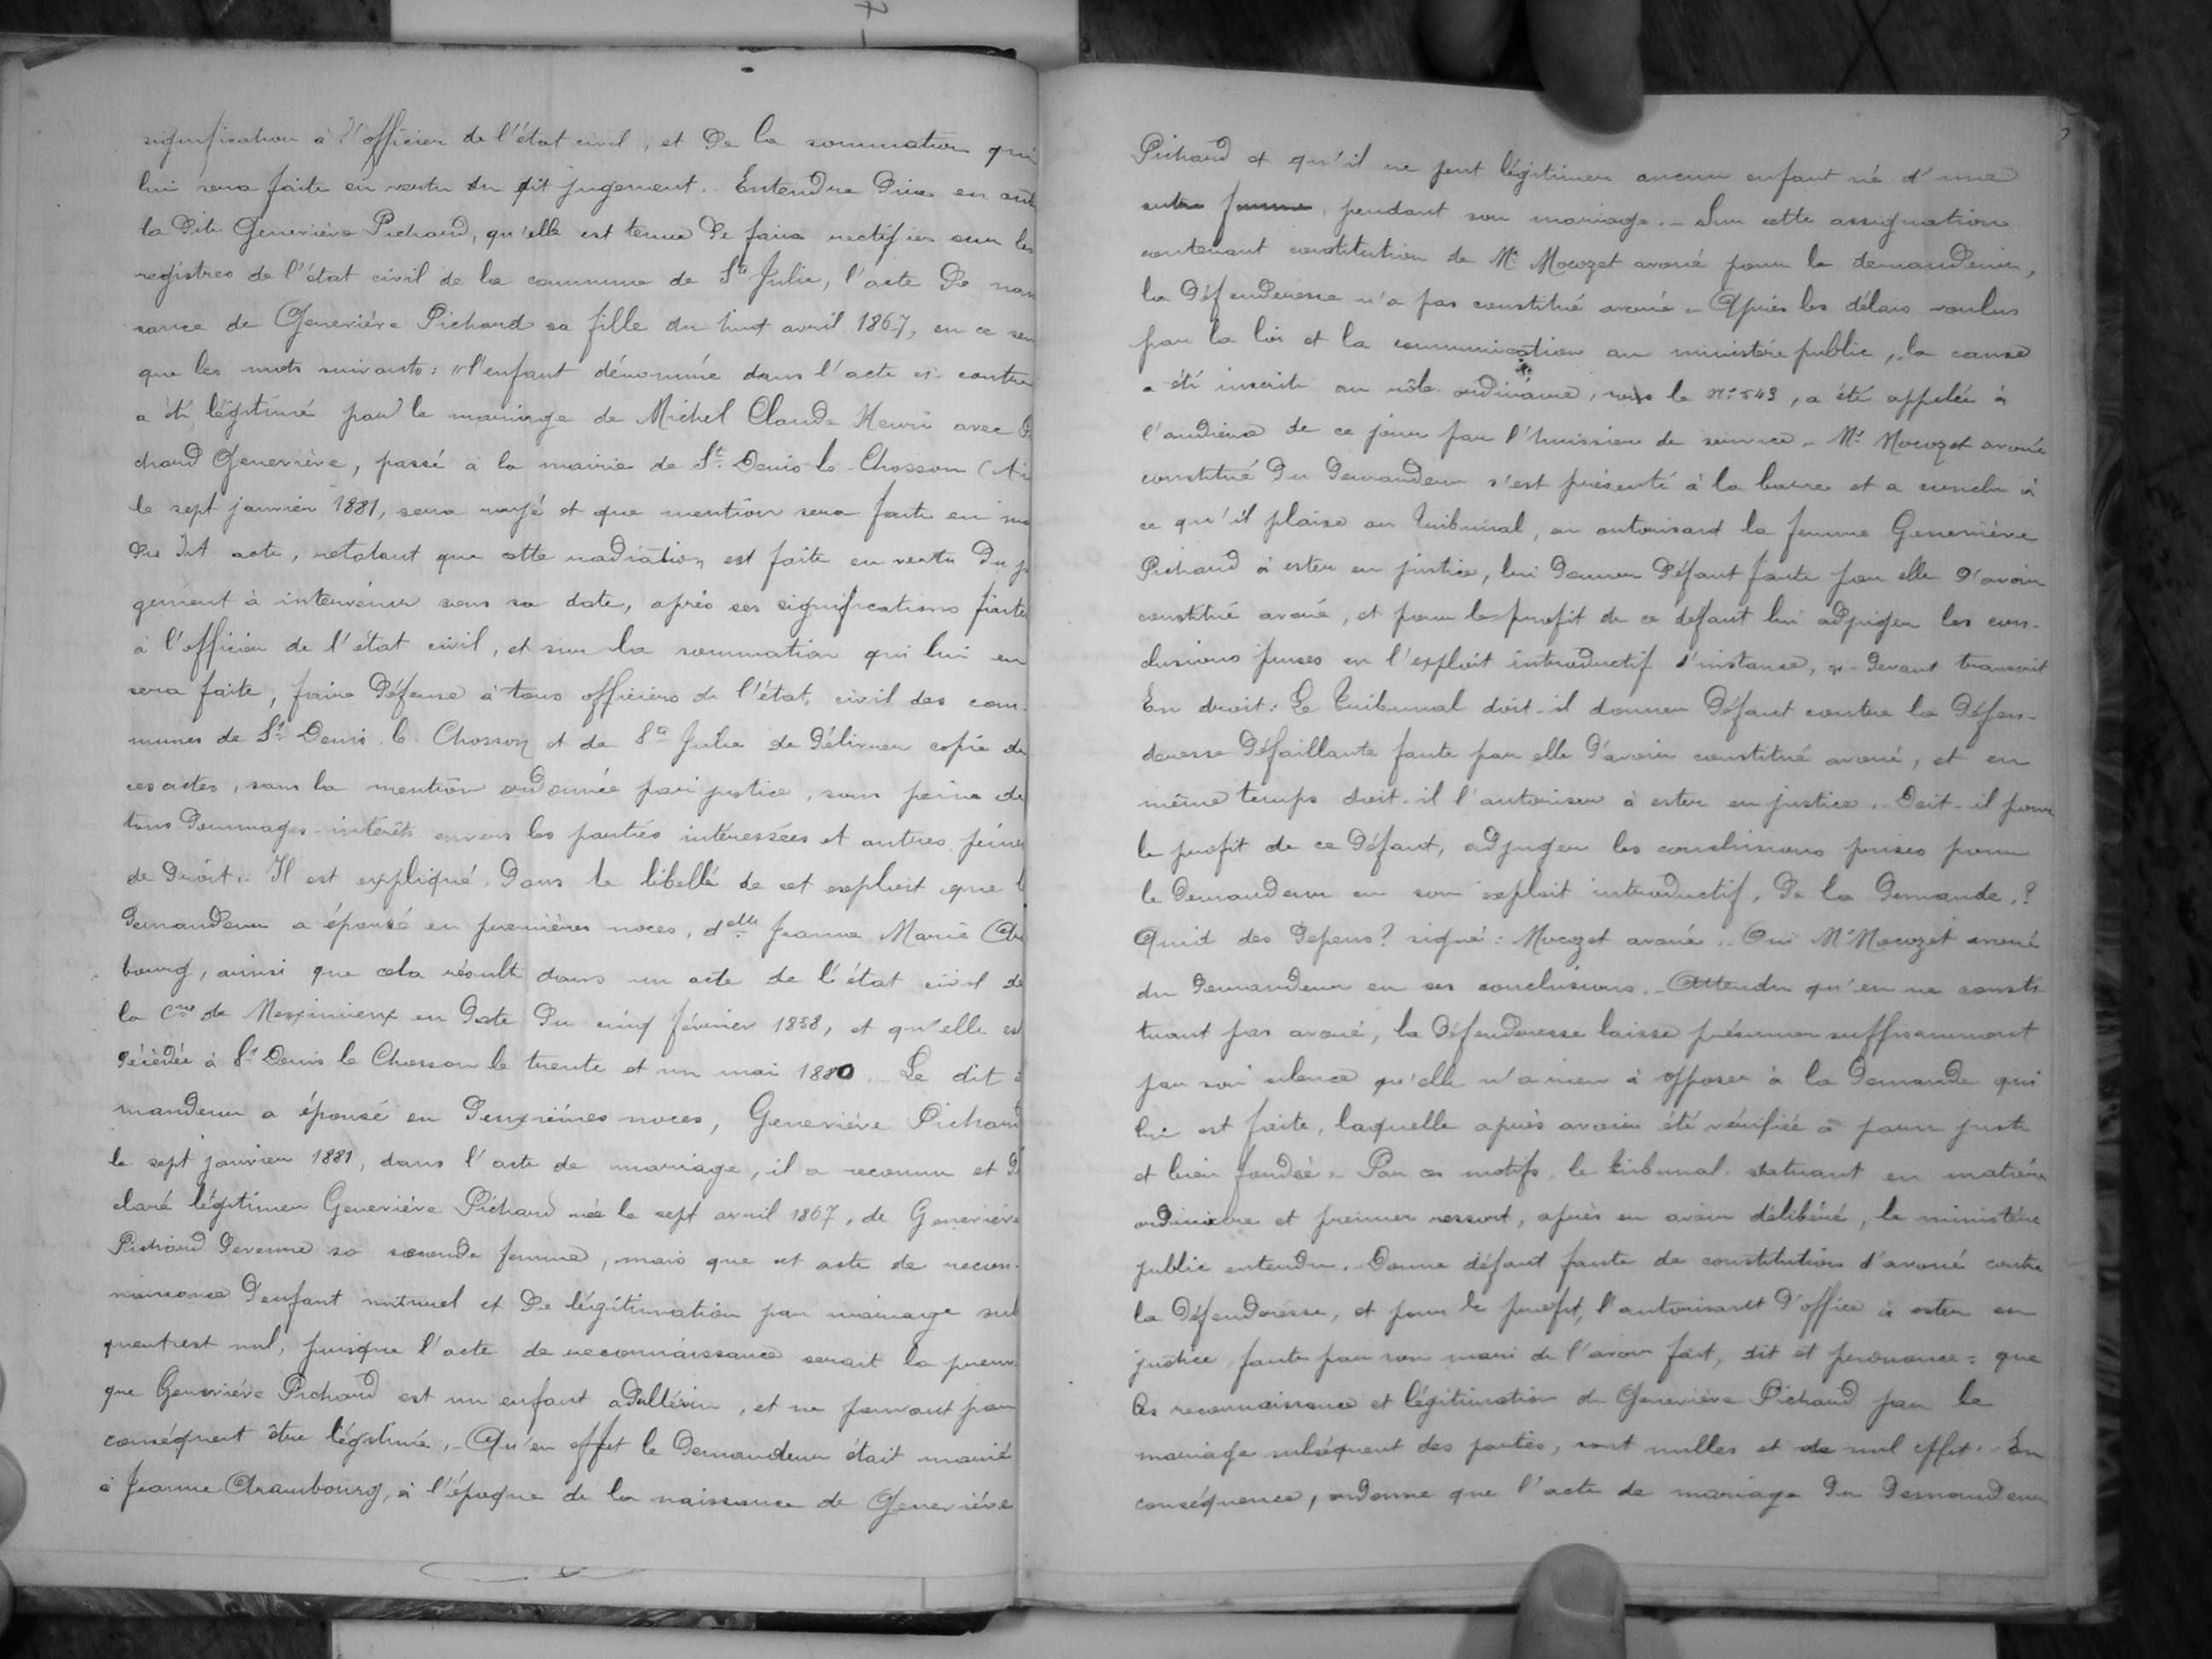 signification à l'officier de l'état civil, et de la sommation qui
lui sera faite en vertu du dit jugement. Entendre dire en out
la dite Geneviève Pichand, qu'elle est tenue de faire rectifier sur les
registres de l'état civil de la commune de Ste Julie, l'acte de nais
sance de Geneviève Pichand sa fille du huit avril 1867, en ce sen
que les mots suivants: "l'enfant dénommé dans l'acte ci-contre
a été légitimé par le mariage de Michel Claude Henri avec P
chand Geneviève, passé à la mairie de St. Denis-le-Chosson (Ain
le sept janvier 1881, sera rayé et que mention sera faite en ma
du dit acte, relatant que cette radiation est faite en vertu du ju
gement à intervenir sous sa date, après ses significations faite
à l'officier de l'état civil, et sur la sommation qui lui en
sera faite, faire défense à tous officiers de l'état civil des com-
munes de St. Denis-le-Chosson et de Ste Julie de délivrer copie de
ces actes, sans la mention ordonnée par justice, sous peine de
tous dommages-intérêts envers les parties intéressées et autres peines
de droit. Il est expliqué dans le libellé de cet exploit que l
demandeur a épousé en premières noces, delle Jeanne Marie Ara
bourg, ainsi que cela résulte dans un acte de l'état civil de
la Cne de Meximieux en date du cinq février 1858, et qu'elle est
décédée à St Denis le Chosson le trente et un mai 1880. Le dit d
mandeur a épousé en deuxièmes noces, Geneviève Pichand
le sept janvier 1881, dans l'acte de mariage, il a reconnu et dé
claré légitimer Geneviève Pichand née le sept avril 1867, de Geneviève
Pichand devenue sa seconde femme, mais que cet acte de recon-
naissance d'enfant naturel et de légitimation par mariage sub
quent est nul, puisque l'acte de reconnaissance serait la preuve
que Geneviève Pichand est un enfant adultérin, et ne pouvant par
conséquent être légitimé. - Qu'en effet le demandeur était marié
à Jeanne Arambourg, à l'époque de la naissance de Geneviève
Pichand et qu'il ne peut légitimer aucun enfant né d'une
autre femme, pendant son mariage. - Sur cette assignation
contenant constitution de Me Mocozet avoué pour le demandeur,
la défenderesse n'a pas constitué avoué - Après les délais voulus
par la loi et la communication au ministère public, la cause
a été inscrite au rôle ordinaire, sous le No 543, a été appelée à
l'audience de ce jour par l'huissier de service. - Me Mocozet avoué
constitué du demandeur s'est présenté à la barre et a conclu à
ce qu'il plaise au tribunal, en autorisant la femme Geneviève
Pichand à ester en justice, lui donner défaut faute par elle d'avoir
constitué avoué, et pour le profit de ce défaut lui adjuger les con-
clusions prises en l'exploit introductif d'instance, ci-devant transcrit
En droit: Le tribunal doit-il donner défaut contre la défen-
deresse défaillante faute par elle d'avoir constitué avoué, et en
même temps doit-il l'autoriser à ester en justice. Doit-il pour
le profit de ce défaut, adjuger les conclusions prises pour
le demandeur en son exploit introductif, de la demande,?
Quid des dépens? signé: Mocozet avoué. Oui Me Mocozet avoué
du demandeur en ses conclusions. - Attendu qu'en ne consti
tuant pas avoué, la défenderesse laisse présumer suffisamment
par son silence qu'elle n'a rien à opposer à la demande qui
lui est faite, laquelle après avoir été vérifiée a paru juste
et bien fondée. - Par ces motifs, le tribunal statuant en matière
ordinaire et premier ressort, après en avoir délibéré, le ministère
public entendu. Donne défaut faute de constitution d'avoué contre
la défenderesse, et pour le profit, l'autorisant d'office à ester en
justice faute par son mari de l'avoir fait, dit et prononce: que
les reconnaissance et légitimation de Geneviève Pichand par le
mariage subséquent des parties, sont nulles et de nul effet. - En
conséquence, ordonne que l'acte de mariage du demandeur